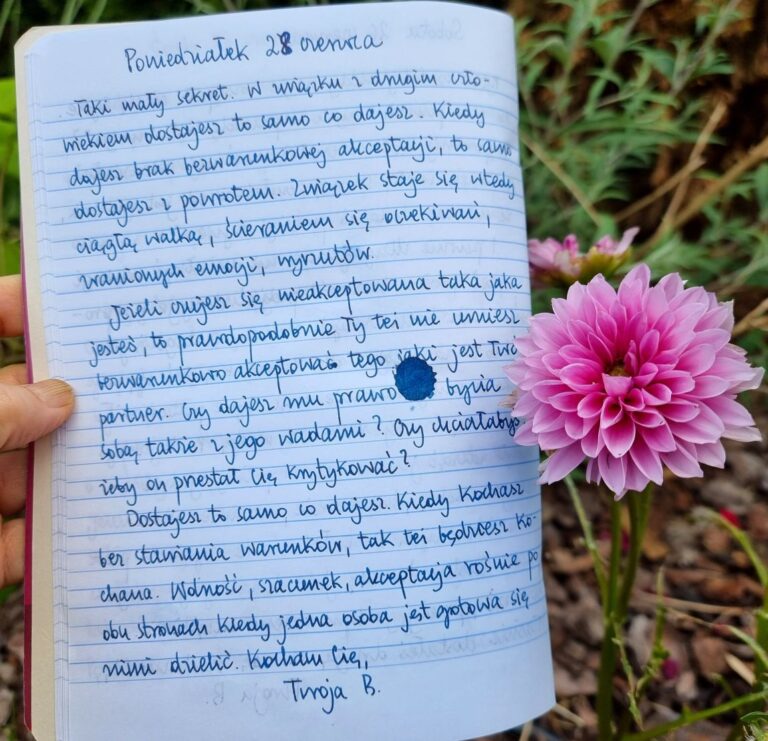 Poniedziałek 28 czerwca
Taki mały sekret. W związku z drugim czło-
wiekiem dostajesz to samo co dajesz. Kiedy
dajesz brak bezwarunkowej akceptacji, to samo
dostajesz z powrotem. Związek staje się wtedy
ciągłą walką, ścieraniem się oczekiwań,
zranionych emocji, wyrzutów.
Jeżeli czujesz się nieakceptowana taka jaka
jesteś, to prawdopodobnie Ty też nie umiesz
bezwarunkowo akceptować tego jaki jest Twój
partner. Czy dajesz mu prawo bycia
sobą, także z jego wadami? Czy chciałabyś
żeby on przestał Cię krytykować?
Dostajesz to samo co dajesz. Kiedy kochasz
bez stawiania warunków, tak też będziesz ko-
chana. Wolność, szacunek, akceptacja rośnie po
obu stronach kiedy jedna osoba jest gotowa się
nimi dzielić. Kocham Cię,
Twoja B.